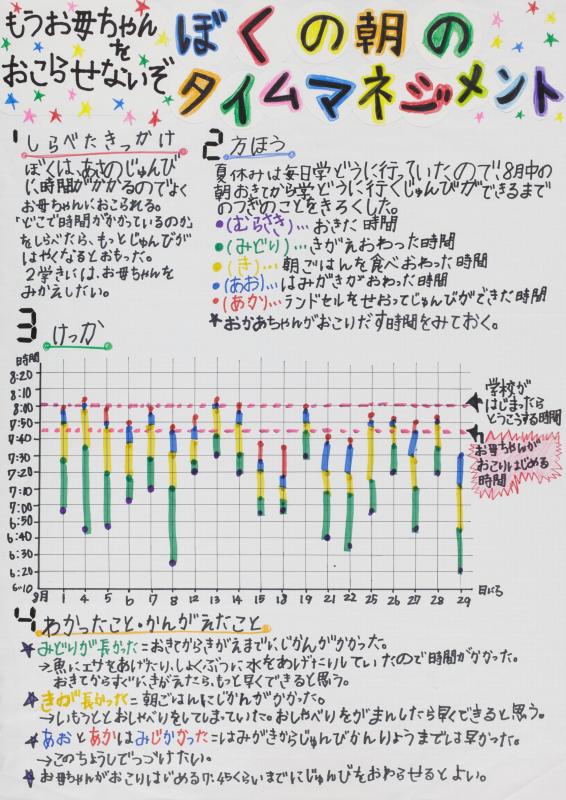 もうお母ちゃん
を
おこらせないぞ
ぼくの朝の
タイムマネジメント
1 しらべたきっかけ
ぼくは、あさのじゅんび
に、時間がかかるのでよく
お母ちゃんにおこられる。
「どこで時間がかかっているのか」
をしらべたら、もっとじゅんびが
はやくなるとおもった。
2学きには、お母ちゃんを
みかえしたい。
2 方ほう
夏休みは毎日学どうに行っていたので、8月中の
朝おきてから学どうに行くじゅんびができるまで
のつぎのことをきろくした。
●(むらさき)…おきた時間
●(みどり)…きがえおわった時間
●(き)…朝ごはんを食べおわった時間
●(あお)…はみがきがおわった時間
●(あか)…ランドセルをせおってじゅんびができた時間
★おかあちゃんがおこりだす時間をみておく。
3 けっか
時間
8:20
8:10
8:00
7:50
7:40
7:30
7:20
7:10
7:00
6:50
6:40
6:30
6:20
6:10
8月 1 4 5 6 7 8 12 13 14 15 18 19 21 22 25 26 27 28 29 日にち
学校が
はじまったら
とうこうする時間
お母ちゃんが
おこりはじめる
時間
4 わかったこと・かんがえたこと
★みどりが長かった=おきてからきがえまでにじかんがかかった。
→魚にエサをあげたり、しょくぶつに水をあげたりしていたので時間がかかった。
おきてからすぐにきがえたら、もっと早くできると思う。
★きが長かった=朝ごはんにじかんがかかった。
→いもうととおしゃべりをしてしまっていた。おしゃべりをがまんしたら早くできると思う。
★あおとあかはみじかかった=はみがきからじゅんびかんりょうまでは早かった。
→このちょうしでつづけたい。
★お母ちゃんがおこりはじめる7:45くらいまでにじゅんびをおわらせるとよい。